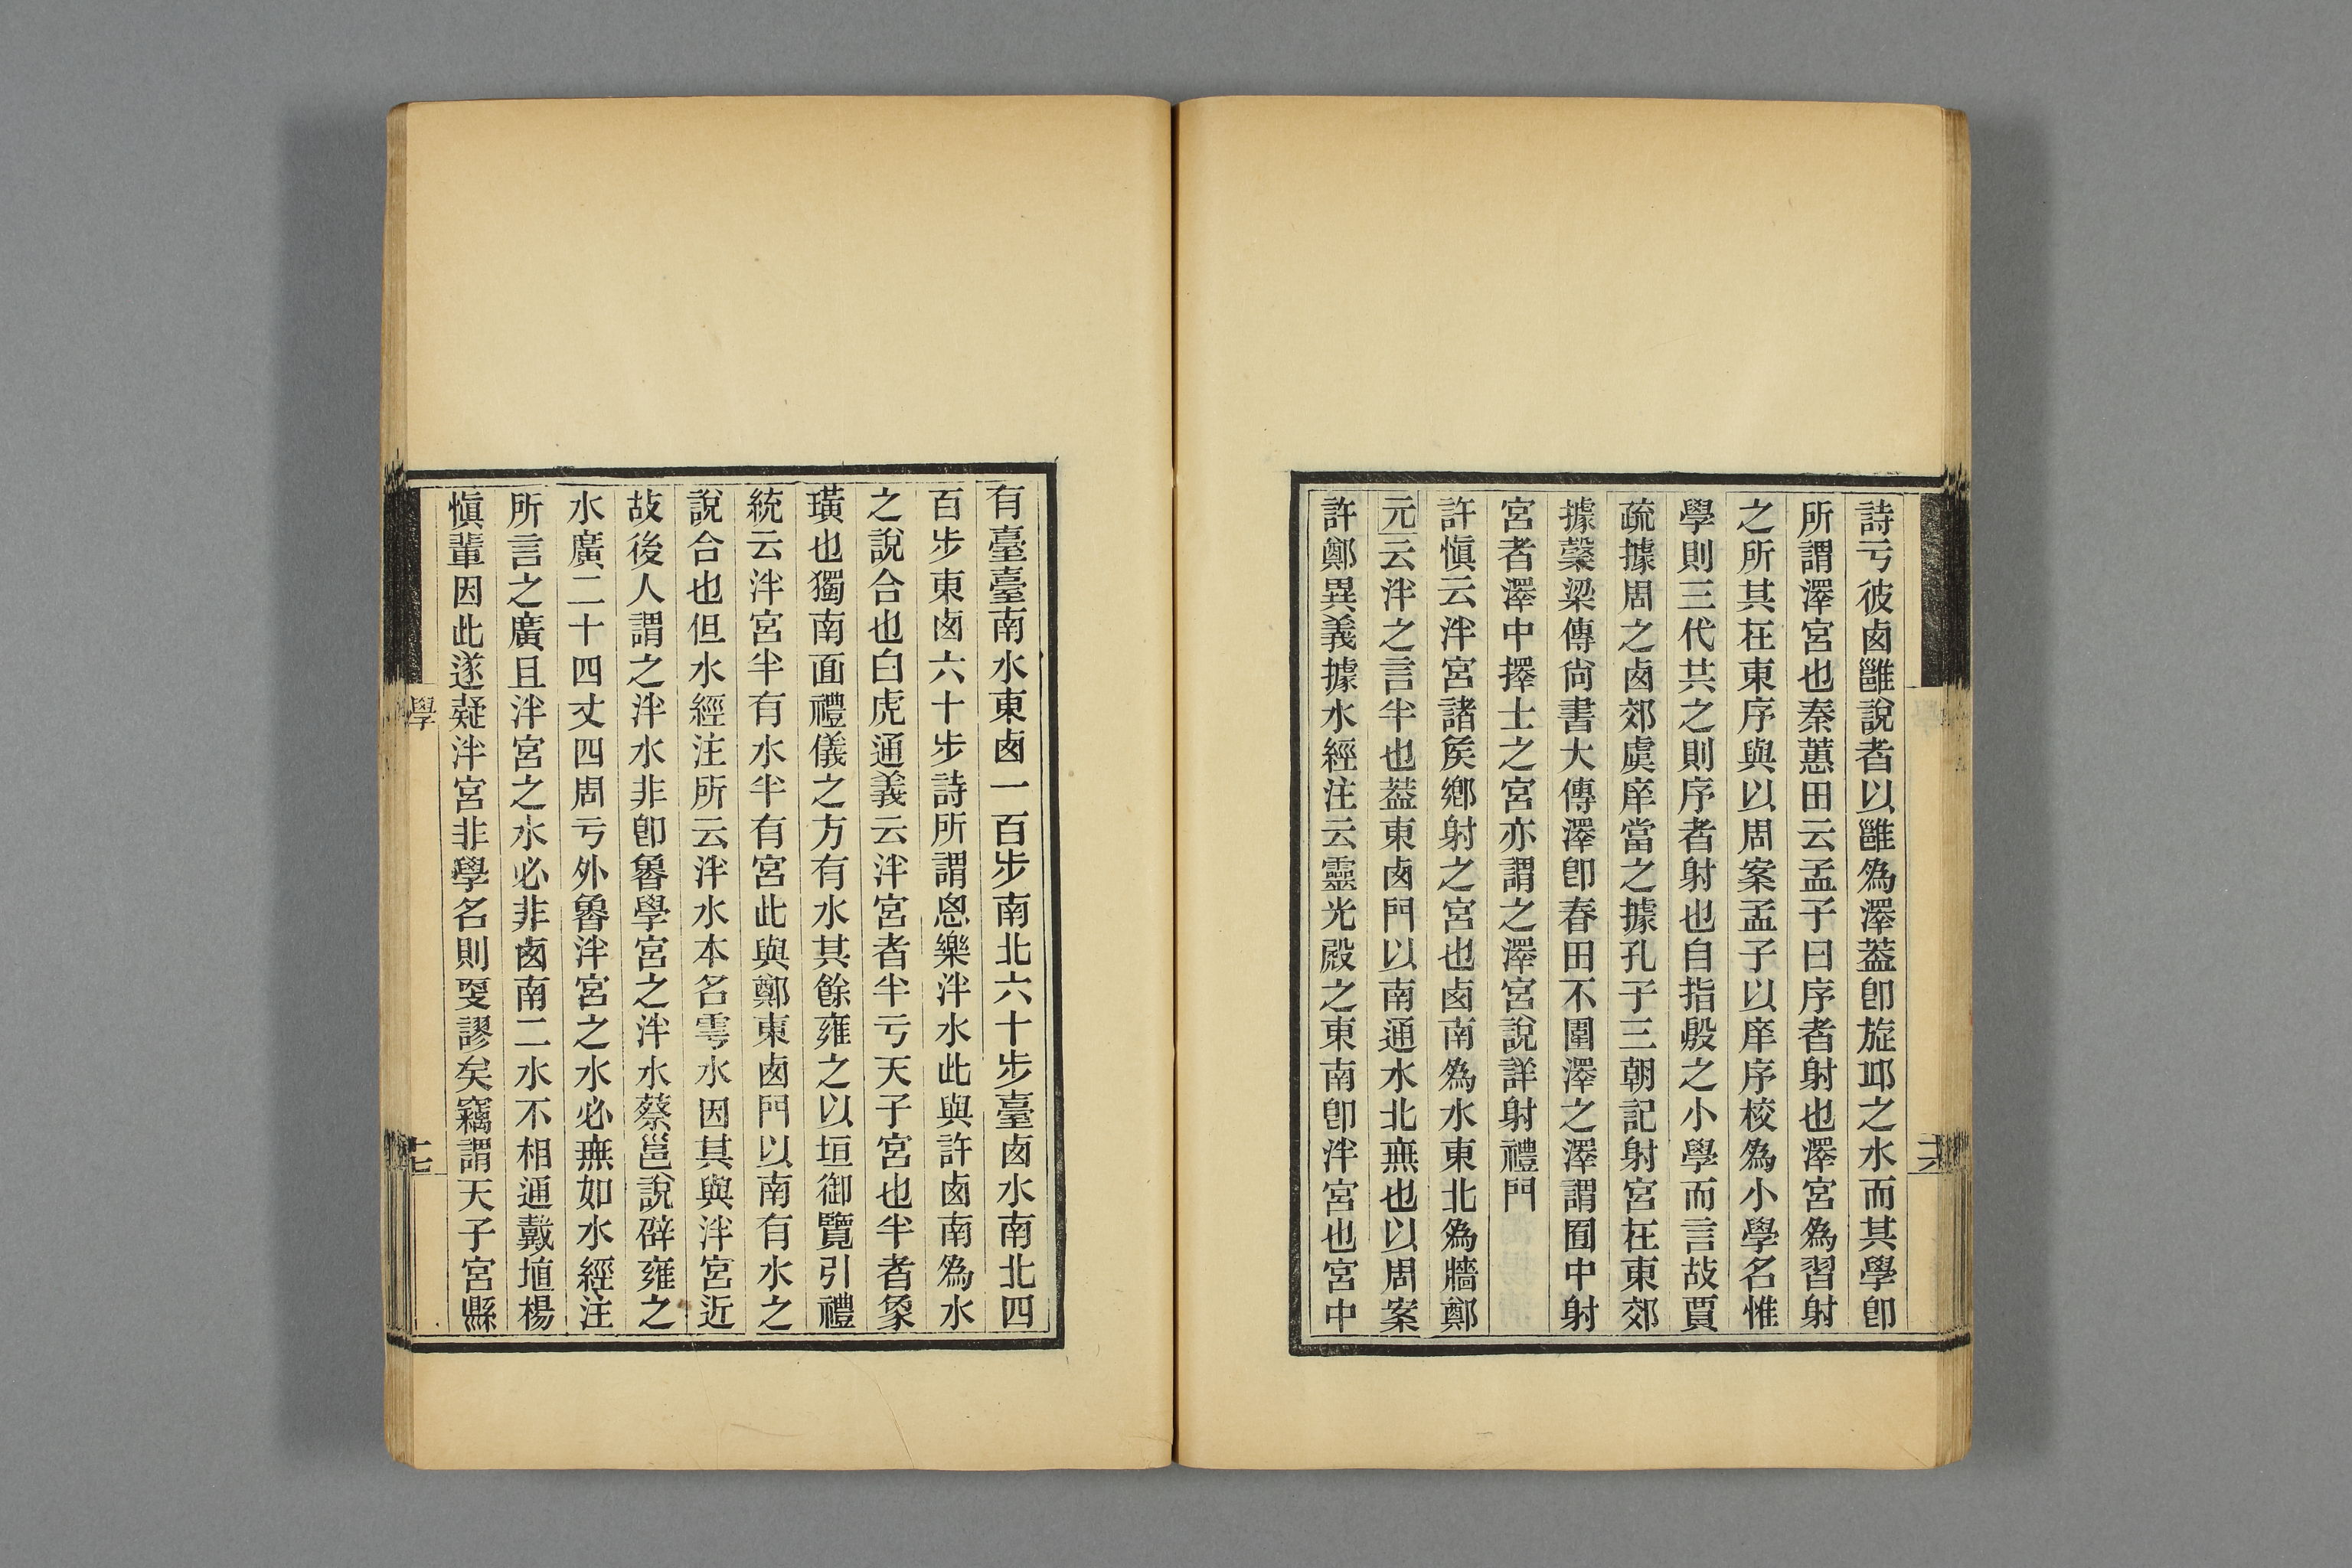 詩亏彼卤雝說者以雝爲澤葢卽旋邱之水而其學卽
所謂澤宮也秦蕙田云孟子曰序者射也澤宮爲習射
之所其在東序與以周案孟子以庠序校爲小學名惟
學則三代共之則序者射也自指殷之小學而言故賈
疏據周之卤郊虞庠當之據孔子三朝記射宮在東郊
據榖梁傳尙書大傳澤卽春田不圍澤之澤謂囿中射
宮者澤中擇士之宮亦謂之澤宮說詳射禮門
許愼云泮宮諸矦鄉射之宮也卤南爲水東北爲牆鄭
元云泮之言半也葢東卤門以南通水北無也以周案
許鄭異義據水經注云靈光殿之東南卽泮宮也宮中
有臺臺南水東卤一百步南北六十步臺卤水南北四
百步東卤六十步詩所謂恖樂泮水此與許卤南爲水
之說合也白虎通義云泮宮者半亏天子宮也半者象
璜也獨南面禮儀之方有水其餘雍之以垣御覽引禮
統云泮宮半有水半有宮此與鄭東卤門以南有水之
說合也但水經注所云泮水本名雩水因其與泮宮近
故後人謂之泮水非卽魯學宮之泮水蔡邕說辟雍之
水廣二十四丈四周亏外魯泮宮之水必無如水經注
所言之廣且泮宮之水必非卤南二水不相通戴埴楊
愼輩因此遂疑泮宮非學名則㪅謬矣竊謂天子宮縣
學
十七
十六